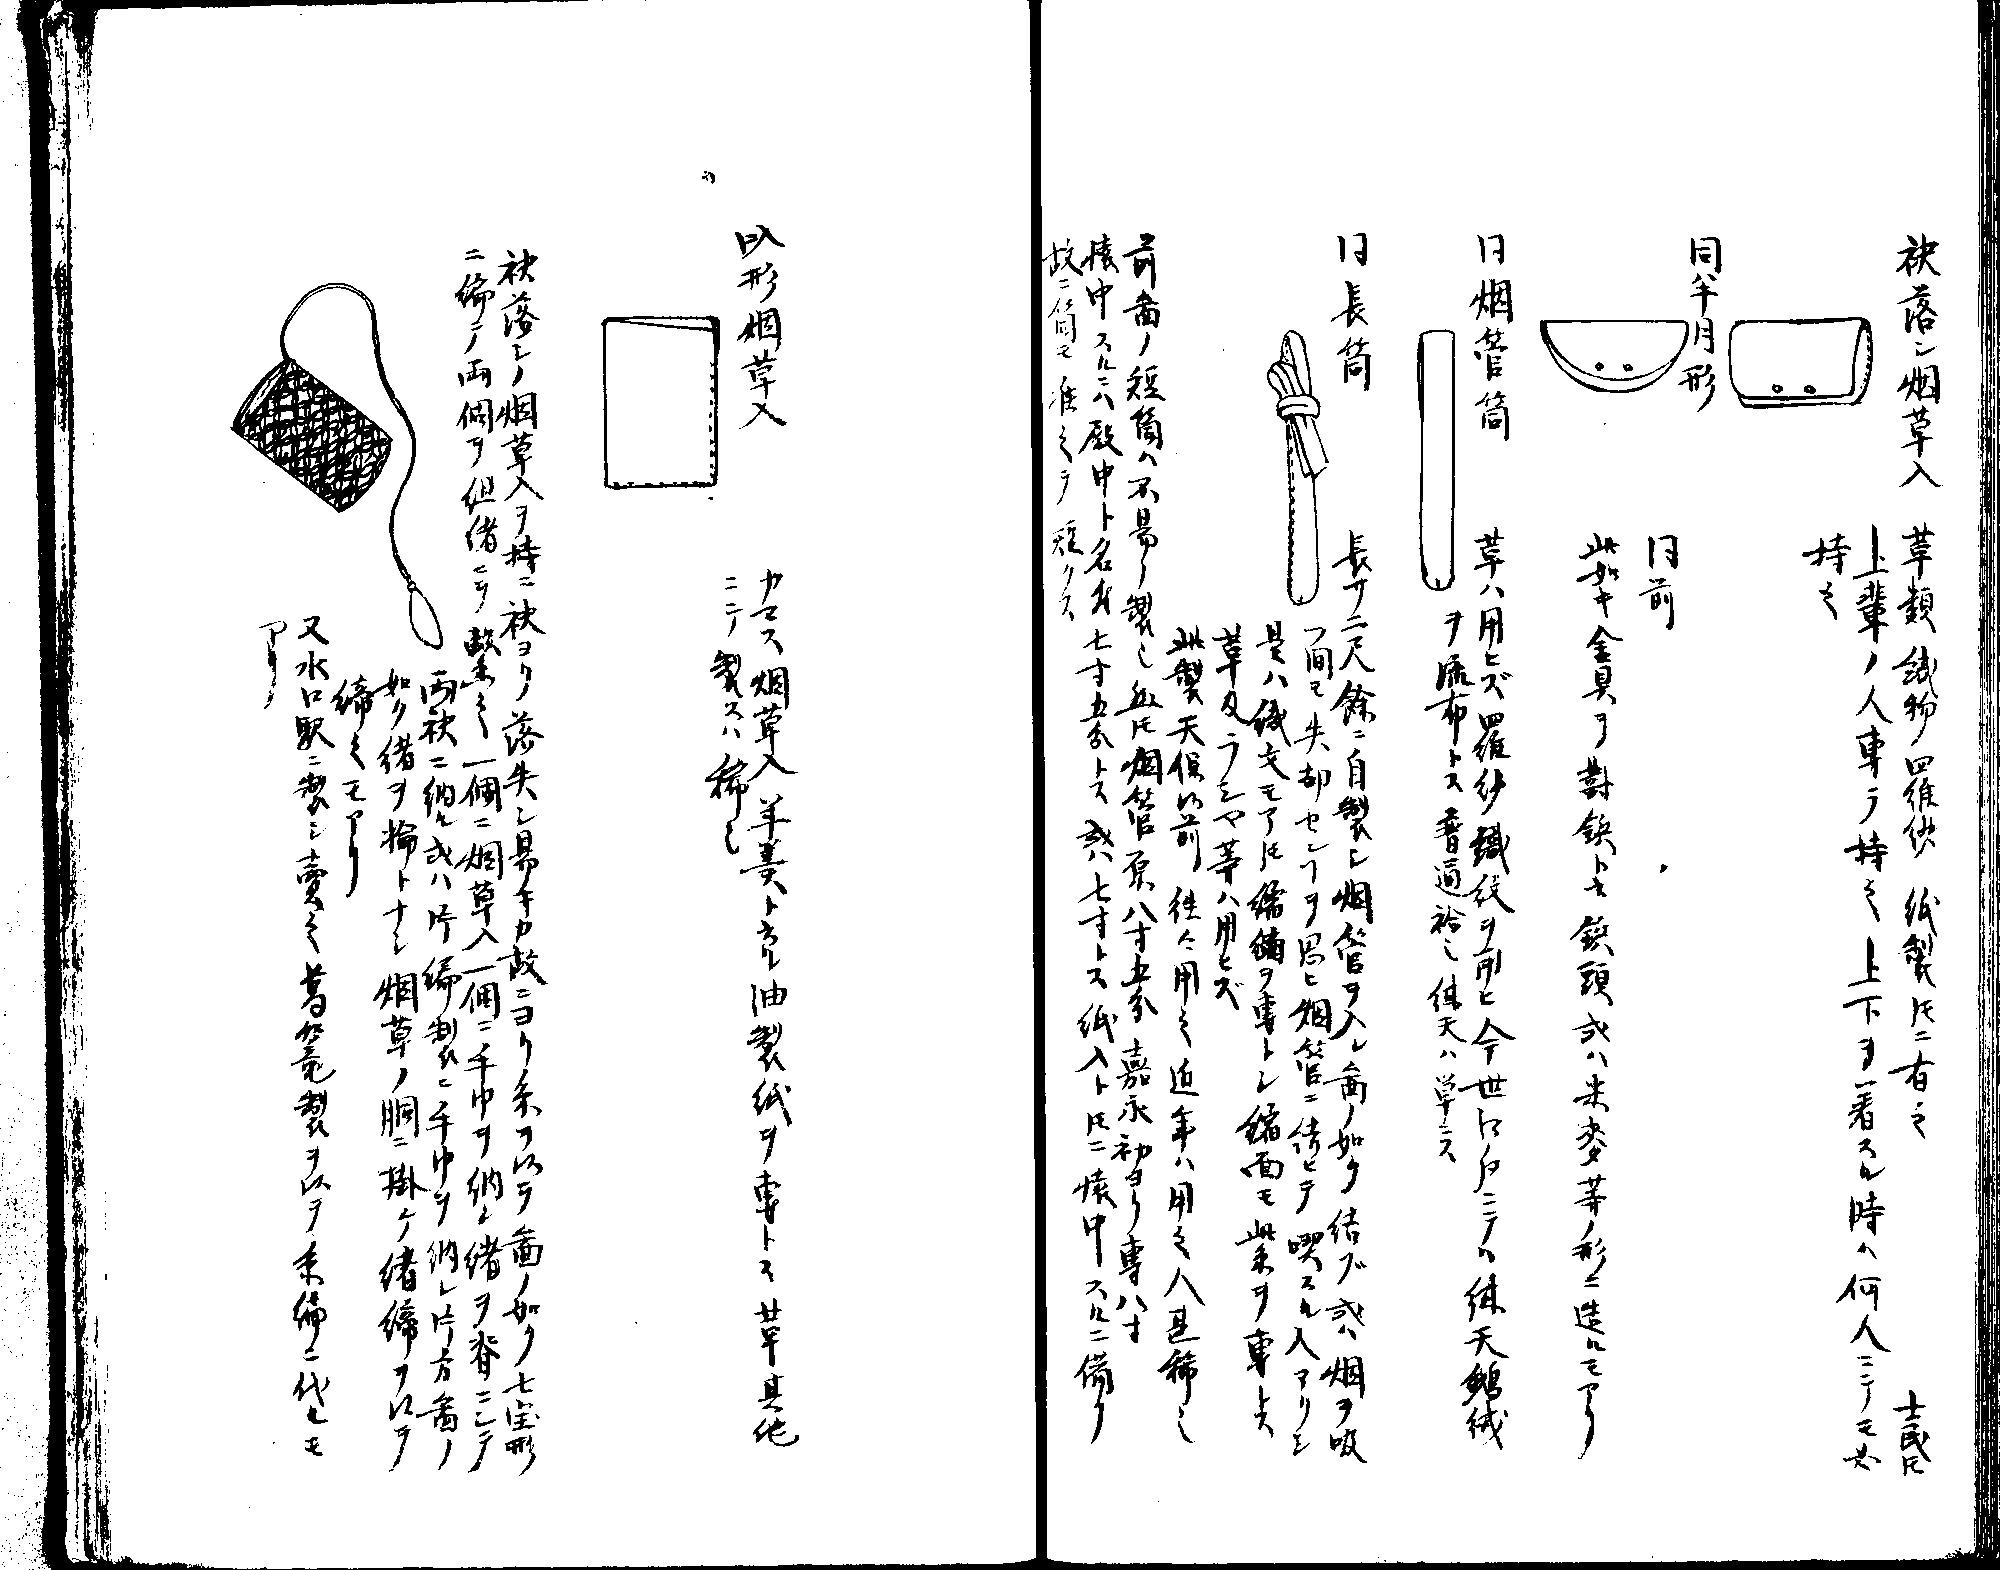 袂落シ烟草入
草類織物羅紗紙製トモニ有之 士民トモ
上輩ノ人専ラ持之上下ヲ着スル時ハ何人ニテモ必
持之
同半月形
同前
此如キ金具ヲ對鋲ト云鋲頭或ハ米麥等ノ形ニ造ルモアリ
同烟管筒
草ハ用ヒズ羅紗織絞ヲ用ヒ今世江戸ニテハ綟天鵝絨
ヲ流布トス普通袷ニ綟天ハ單ニス
同長筒
長サ二尺餘ニ自製シ烟管ヲ入レ畵ノ如ク結ブ或ハ烟ヲ吸
フ間モ失却センヿヲ思ヒ烟管ニ結ヒテ喫スル人アリシ
是ハ織文モアレトモ縮緬ヲ專トシ縮面モ紫ヲ專トス
草及ラシヤ等ハ用ヒズ
此製天保以前往々用之近年ハ用之人甚稀也
前畵ノ短筒ハ不易ノ製也然トモ烟管原八寸五分嘉永初ヨリ專八寸
懐中スルニハ殿中ト名付七寸五分トス或ハ七寸トス紙入トトモニ懐中スルニ備フ
故ニ筒モ准之テ短クス
叺形烟草入
カマス烟草入羊羹ト云油製紙ヲ專トス草其他
ニテ製スハ稀也
袂落シノ烟草入ヲ持ニ袂ヨリ落失シ易キカ故ニヨリ糸ヲ以テ畵ノ如ク七宝形
ニ編テ両個ヲ組緒ニテ繋之一個ニ烟草入一個ニ手巾ヲ納レ緒ヲ脊ニシテ
両袂ニ納ル或ハ片編製ニ手巾ヲ納レ片方畵ノ
如ク緒ヲ輪トナシ烟草ノ胴ニ掛ケ緒締ヲ以テ
締之モアリ
又水口駅ニ製シ賣之葛篭製ヲ以テ糸編ニ代ルモ
アリ